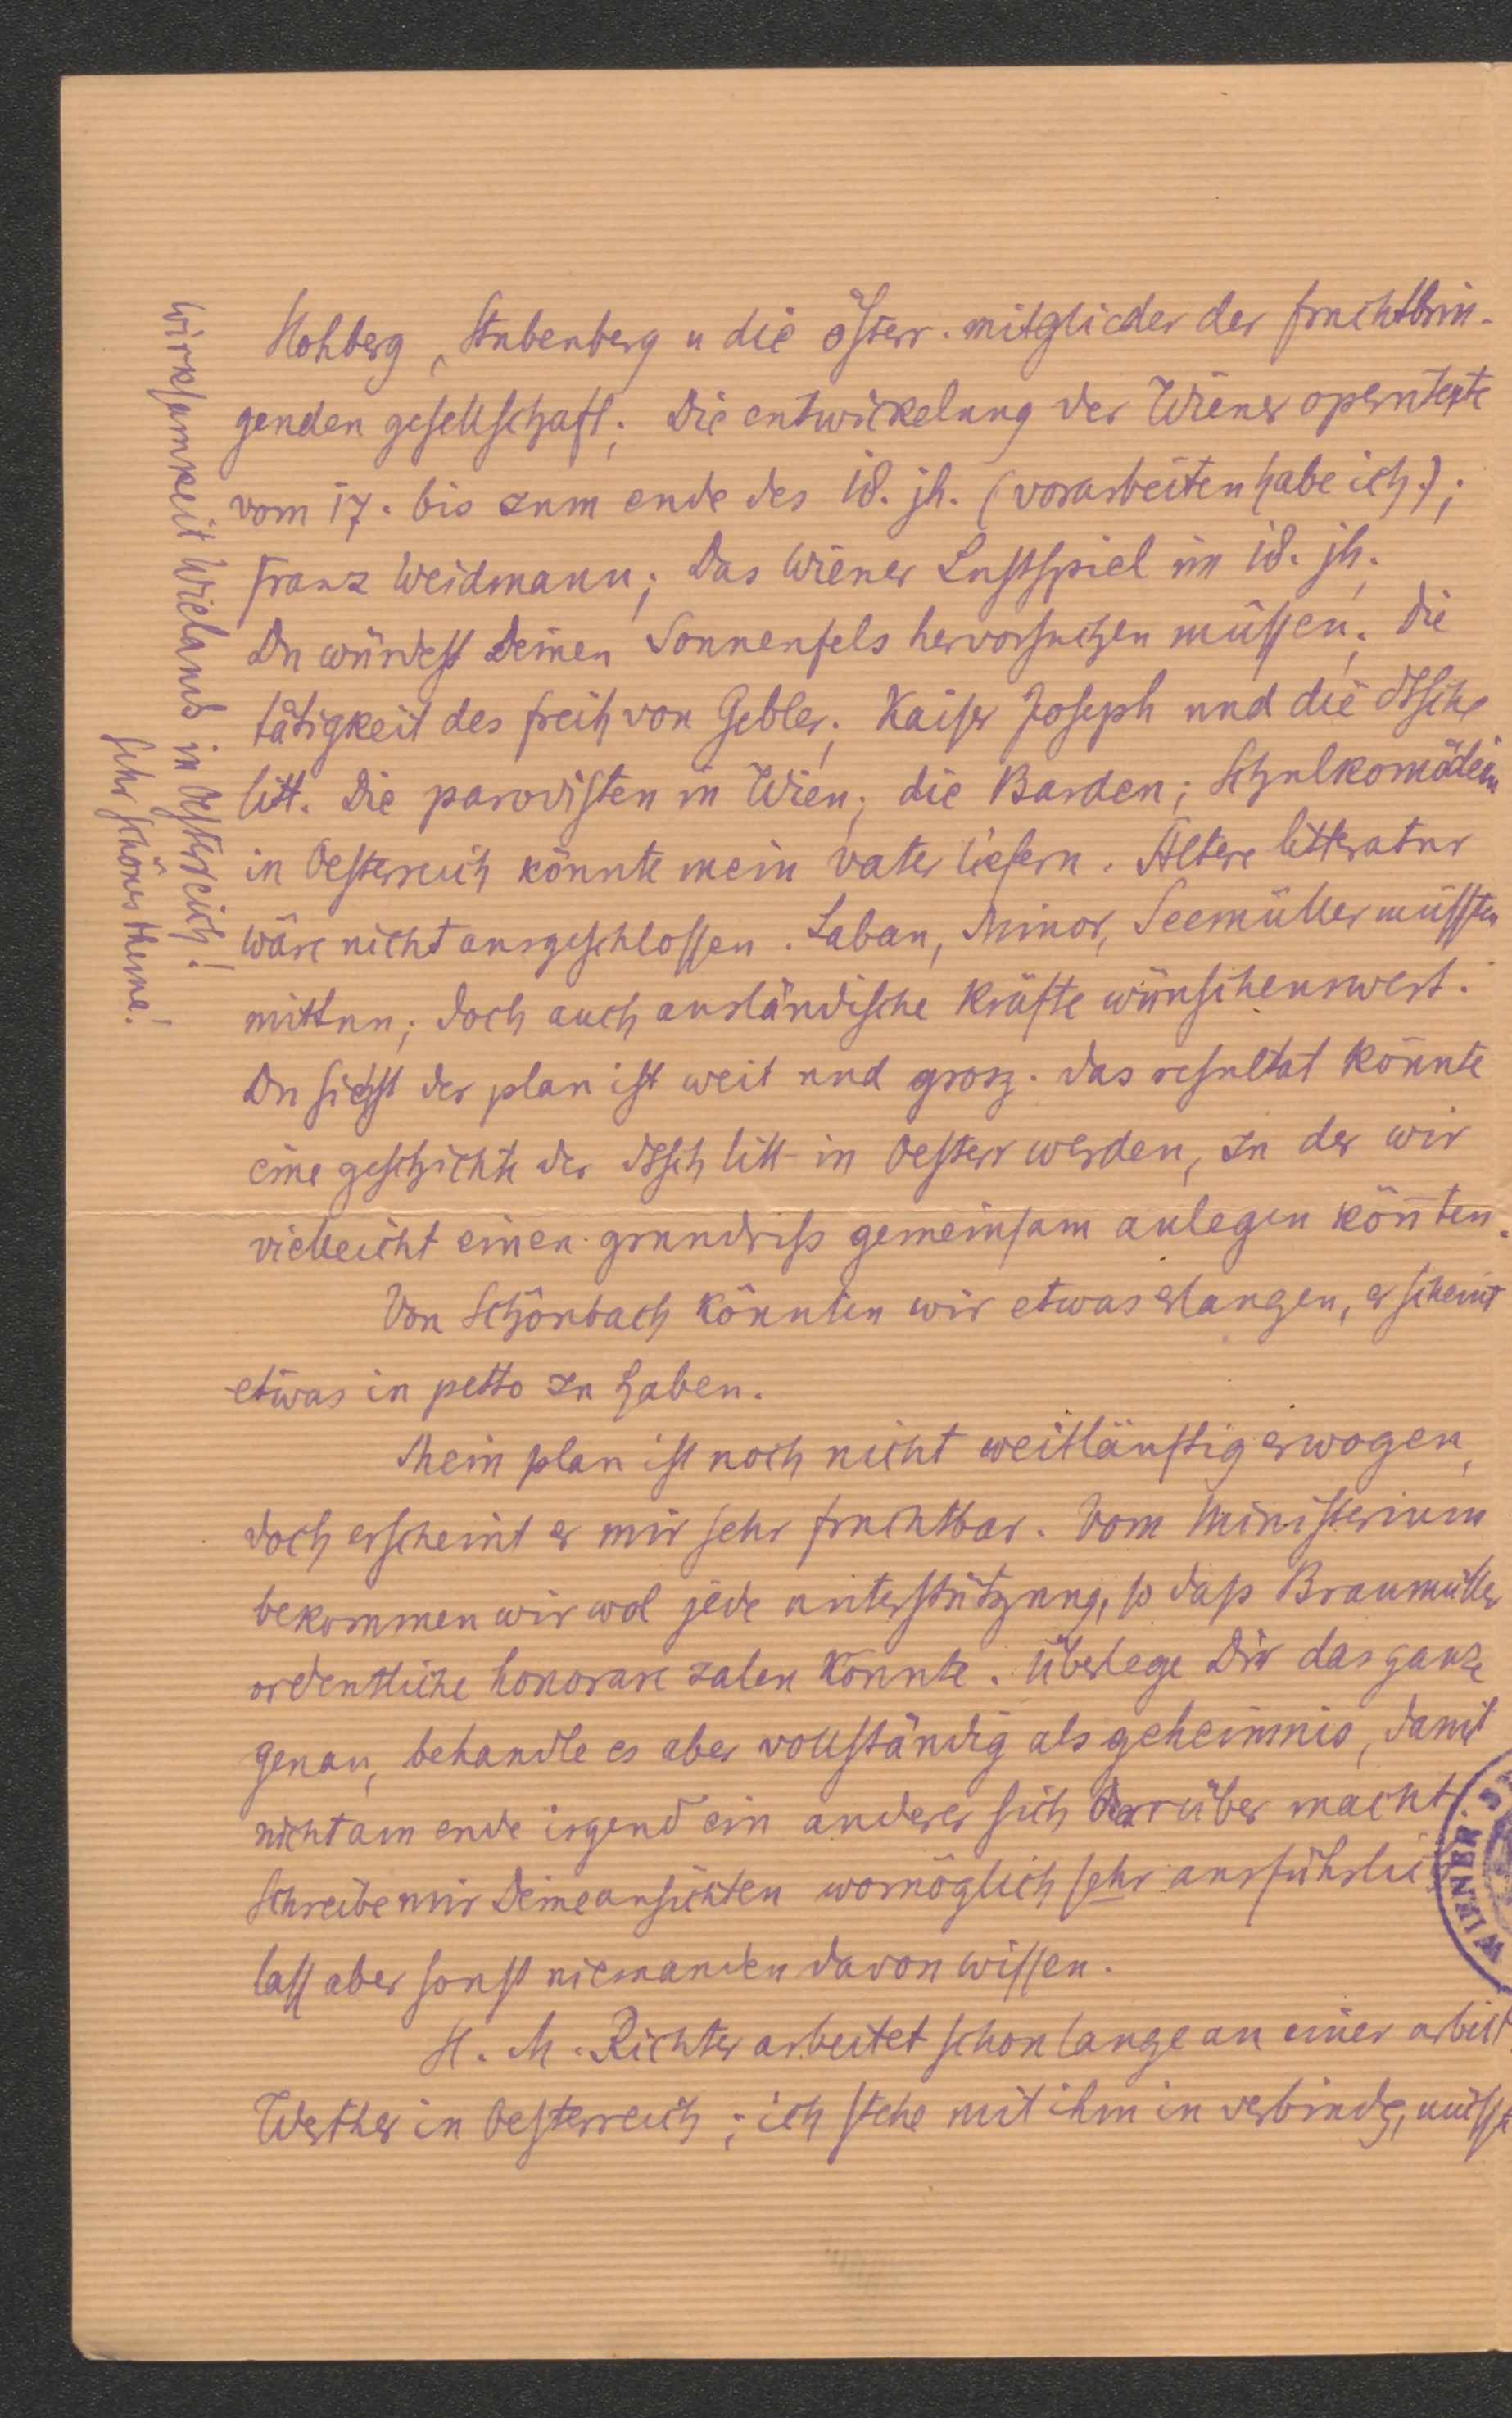 Hohberg, Stubenberg u die österr. mitglieder der fruchtbrin-
genden gesellschaft; Die entwickelung der Wiener operntexte
vom 17. bis zum ende des 18. jh. (vorarbeiten habe ich.);
Franz Weidmann; Das Wiener Lustspiel im 18. jh.;
Du würdest Deinen Sonnenfels hervorsuchen müssen; Die
tätigkeit des freih von Gebler; Kaiser Joseph und die dtsche
litt. Die parodisten in Wien; die Barden; Schulkomödien
in Oesterreich könnte mein vater liefern. Ältere litteratur
wäre nicht ausgeschlossen. Laban, Minor, Seemüller müssten
mittun; doch auch ausländische Kräfte wünschenswert.
Du siehst der plan ist weit und grosz. das resultat könnte
eine geschichte der dtsch litt in Oesterr werden, zu der wir
vielleicht einen grundriss gemeinsam anlegen kön̄ten.
Von Schönbach könnten wir etwas erlangen, er scheint
etwas in petto zu haben.
Mein plan ist noch nicht weitläuftig erwogen,
doch erscheint er mir sehr fruchtbar. Vom Ministerium
bekommen wir wol jede unterstützung, so dass Braumüller
ordentliche honorare zalen könnte. Überlege Dir das ganze
genau, behandle es aber vollständig als geheimnis, damit
nicht am ende irgend ein anderer sich darüber macht
Schreibe mir Deine ansichten womöglich sehr ausführlich
lass aber sonst niemanden davon wissen.
H. M. Richter arbeitet schon lange an einer arbeit
Werther in Oesterreich; ich stehe mit ihm in verbindg, müsste
Wirksamkeit Wielands in Oesterreich!
sehr schönes thema!
WIENER